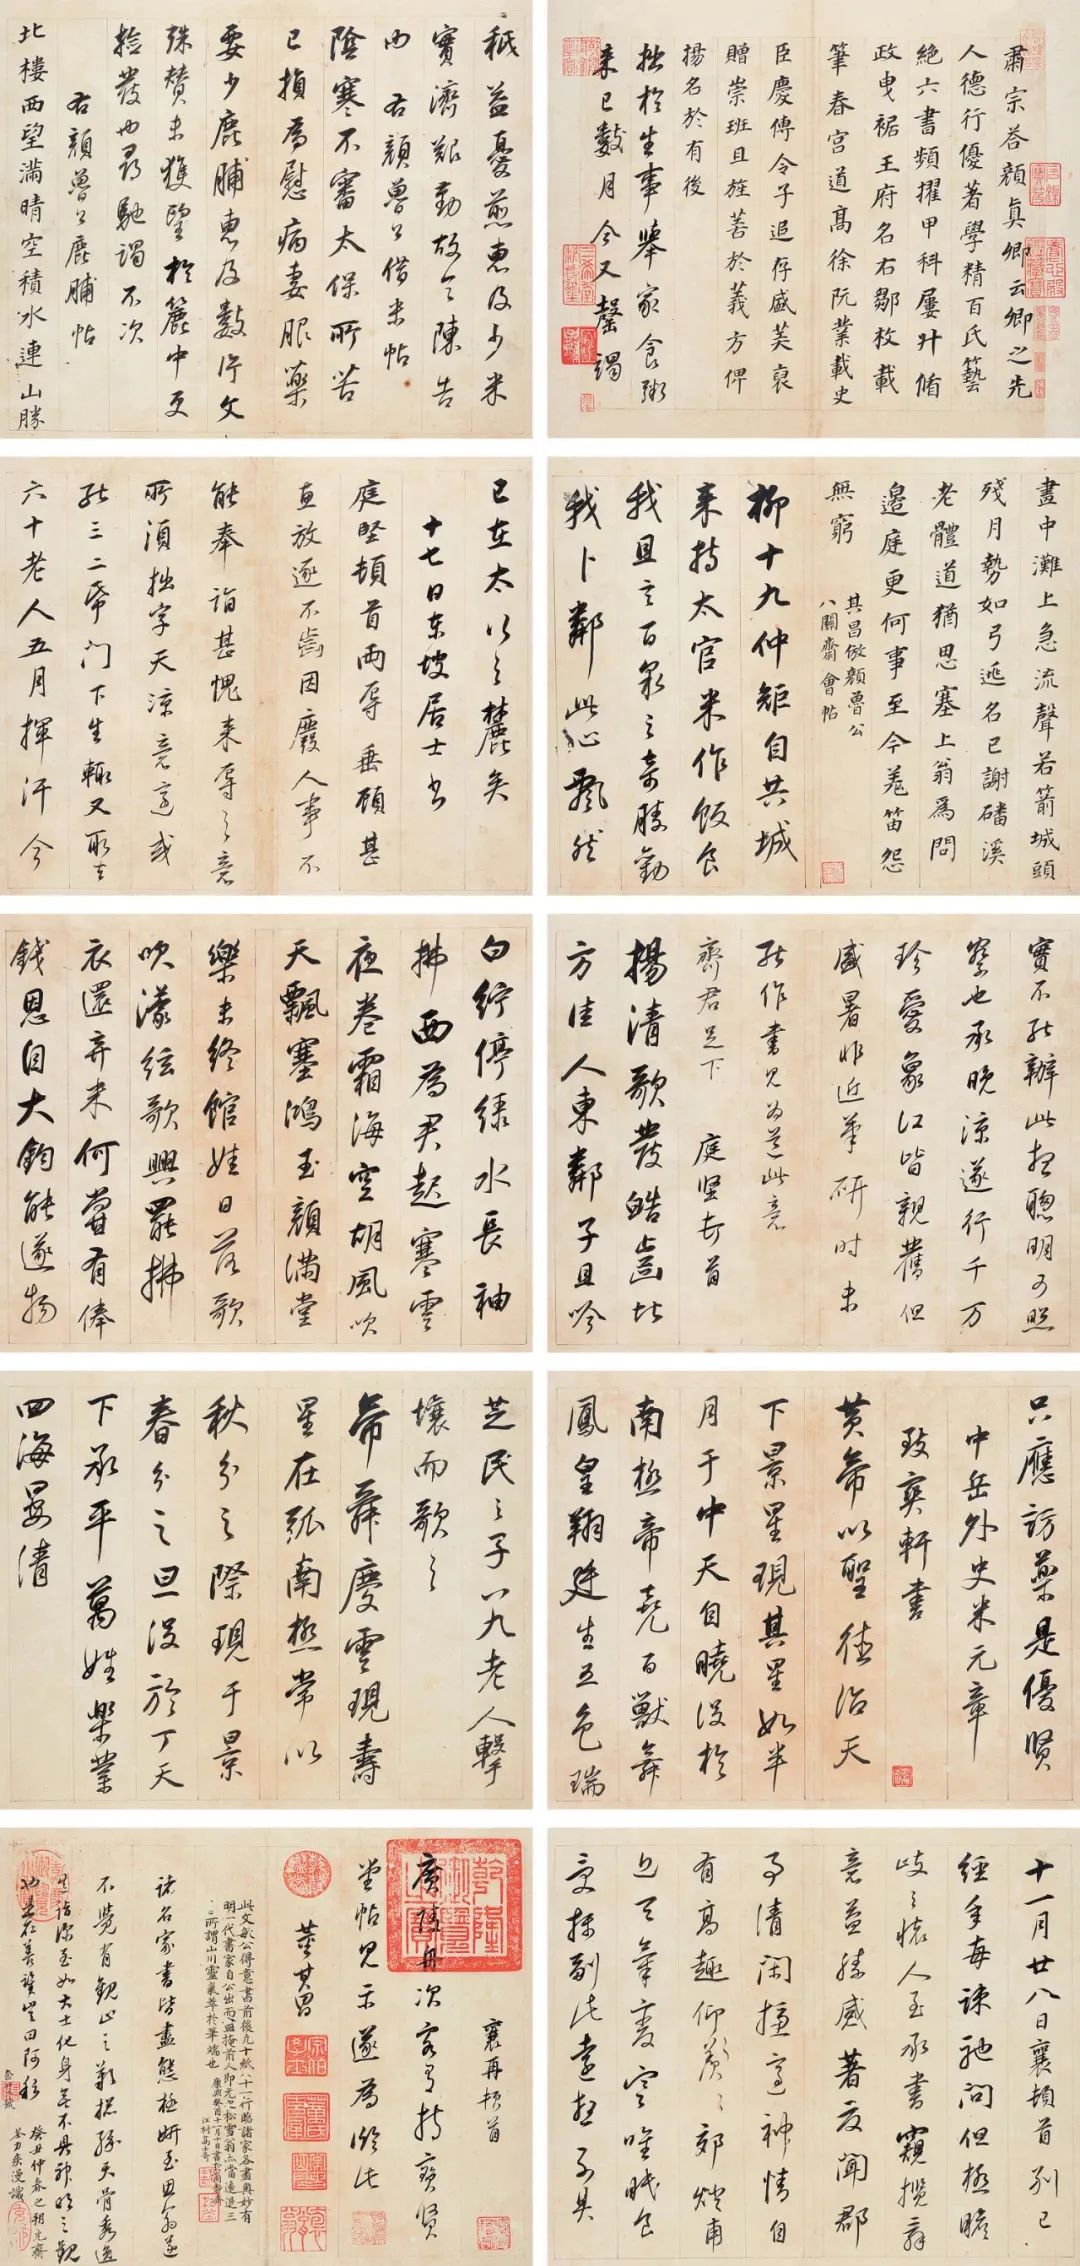 肅宗荅顏真卿云卿之先
人德行優著學精百氏藝
絕六書頻擢甲科屢升循
政曳裾王府名右鄒枚載
筆春宮道高徐阮業載史
臣慶傳令子追存盛美褒
贈崇班且旌善於義方俾
揚名於有後
拙於生事舉家食粥
來已數月今又罄竭
秖益憂煎惠及少米
實濟艱勤故令陳告
內 右顏魯公借米帖
陰寒不審太保所苦
已損為慰病妻服藥
要少鹿脯惠及數片文
殊贊未獲望於麓中更
撿發也尋馳謁不次
右顏魯公鹿脯帖
北樓西望滿晴空積水連山勝
畫中灘上急流聲若箭城頭
殘月勢如弓逃名已謝磻溪
老體道猶思塞上翁為問
邉庭更何事至今羌笛怨
無窮
其昌倣顏魯公
八關齋會帖
柳十九仲矩自共城
來持太官米作飯食
我且言百泉之奇勝勸
我卜鄰此心飄然
已在太行之麓矣
十七日東坡居士書
庭堅頓首兩辱垂顧甚
直放逐不齒因廢人事不
能奉詣甚愧來辱之意
所須拙字天涼意適或
能三二紙門下生輙又取去
六十老人五月揮汗今
實不能辦此想聰明可照
察也承晚涼遂行千万
珍愛象江皆親舊但
盛暑非近筆研時未
能作書見為道此意
齊君足下 庭堅頓首
揚清歌發皓齒北
方佳人東鄰子且吟
白紵停綠水長袖
拂面為君起寒雲
夜卷霜海空胡風吹
天飄塞鴻玉顏滿堂
樂未終館娃日落歌
吹濛絃歌興罷拂
衣還弃来何嘗有俸
錢恩自大鈞能遂物
只應訪藥是優賢
中岳外史米元章
致爽軒書
黃帝以聖德治天
下景星現其星如半
月于中天自曉沒於
南極帝堯百獸舞
鳳皇翔廷生五色瑞
芝民之子八九老人擊
壤而歌之
帝舜慶雲現壽
星在弧南極常以
秋分之際現于景
春分之旦沒於丁天
下承平萬姓樂業
四海晏清
十一月廿八日襄頓首別已
經年每誅馳問但極瞻
歧之懷人至承書竊攬辭
意益勝感著又聞郡
事清閑擁適神情自
有高趣仰羨之郊燧甫
近天氣變寒唯眠食
襄再頓首
廣陵舟次客有持寶賢
堂帖見示遂為臨此
董其昌
此文敏公得意書前後九十紙八十一行臨諸家各盡奧妙有
明一代書家自公出而盡掩前人即元之松雪翁亦當遜三
所謂山川靈氣萃於筆端也
江村高士奇
諸名家書皆盡態極妍至思翁逐
不覺有觀止之歎
癸丑仲春之朔